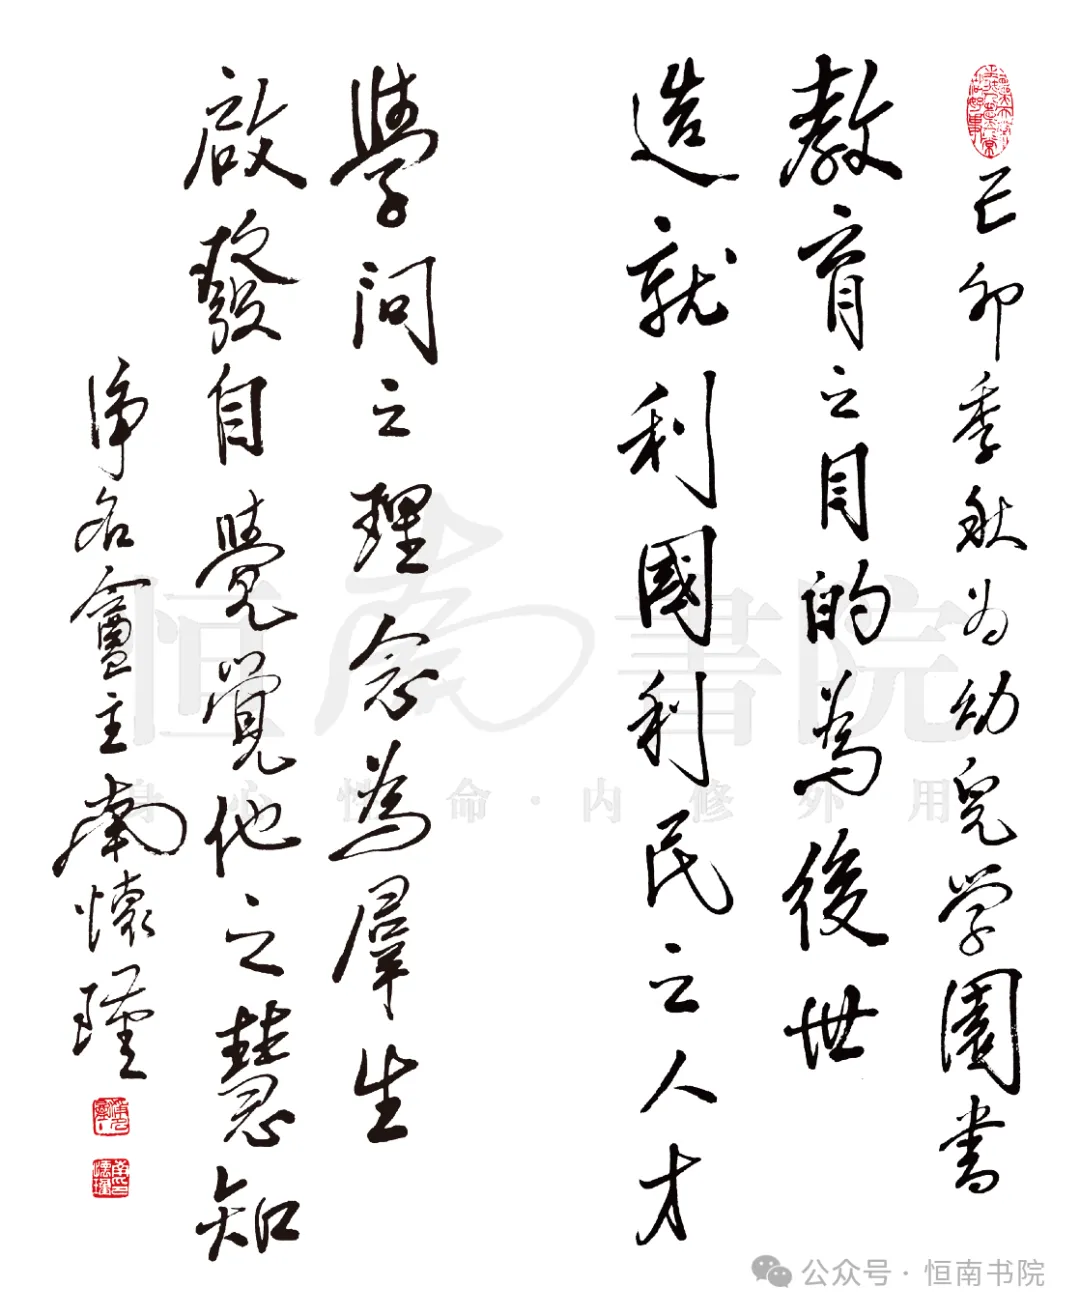 己卯季秋为幼兒学園書
教育之目的為後世
造就利國利民之人才
學問之理念為羣生
啟發自覺覺他之慧知
淨名盦主南懷瑾
恒南書院
身心性命·内修外用
公众号·恒南书院